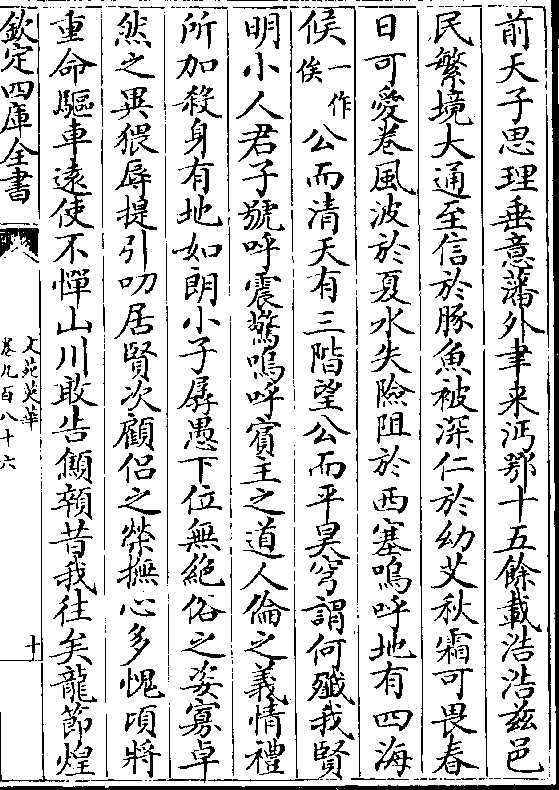 前天子思理垂意藩外聿来沔鄂十五餘載浩浩兹邑
民繁境大通至信於豚魚被深仁於幼艾秋霜可畏春
日可愛卷風波於夏水失險阻於西塞嗚呼地有四海
候一作俟公而清天有三階望公而平昊穹謂何殱我賢
明小人君子號呼震驚嗚呼賓主之道人倫之義情禮
所加殺身有地如朗小子孱愚下位無絶俗之姿寡卓
然之異猥辱提引叨居賢次顧侣之榮撫心多愧頃將
重命驅車遠使不憚山川敢告顦顇昔我往矣龍節煌
欽定四庫全書
文苑英華
卷九百八十六
十